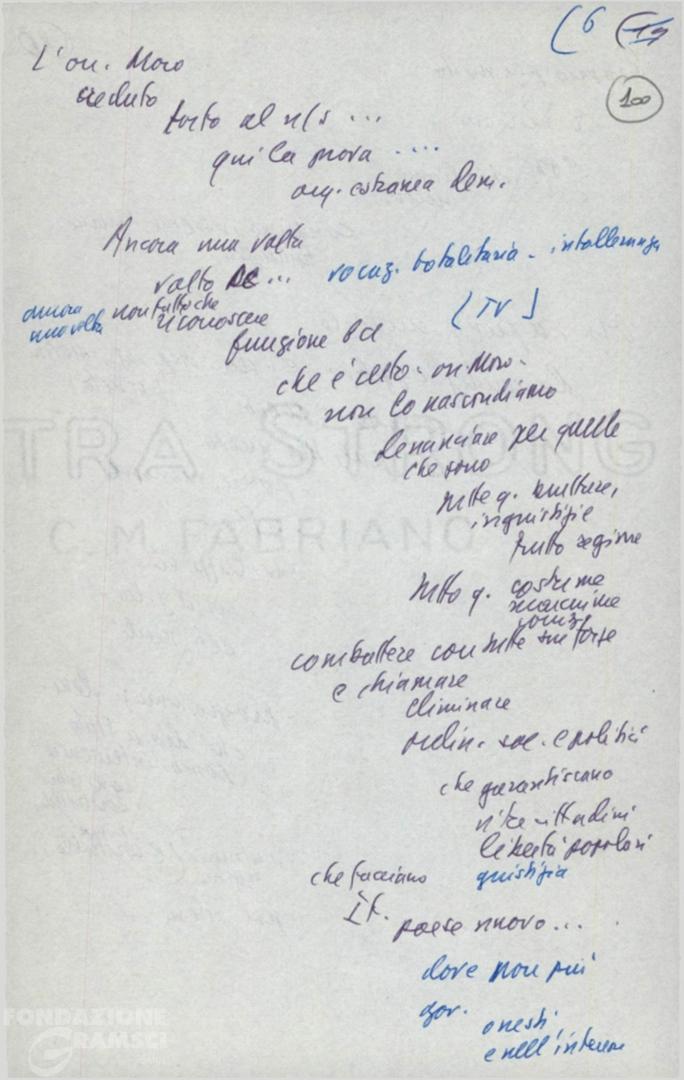 (6 19
100
L'on. Moro
creduto
torto al n/s ...
qui la prova ....
org. estranea dem.
Ancora una volta
volto DC ... vocaz. totalitaria - intolleranza
ancora una volta non fatto che
riconoscere (TV)
funzione Pd
che è detto - on Moro -
non lo nascondiamo
denunciare per quelle
che sono
tutte q. brutture,
ingiustizie
frutto regime
tutto q. costume
combattere con tutte sue forze
e chiamare
eliminare
ordin. soc. e politici
che garantiscano
vite cittadini
libertà popolari
che facciano giustizia
It.
paese nuovo ...
dove non più
gov.
onesti
e nell'interesse
TRA STRONG
C.M. FABRIANO
FONDAZIONE
GRAMSCI